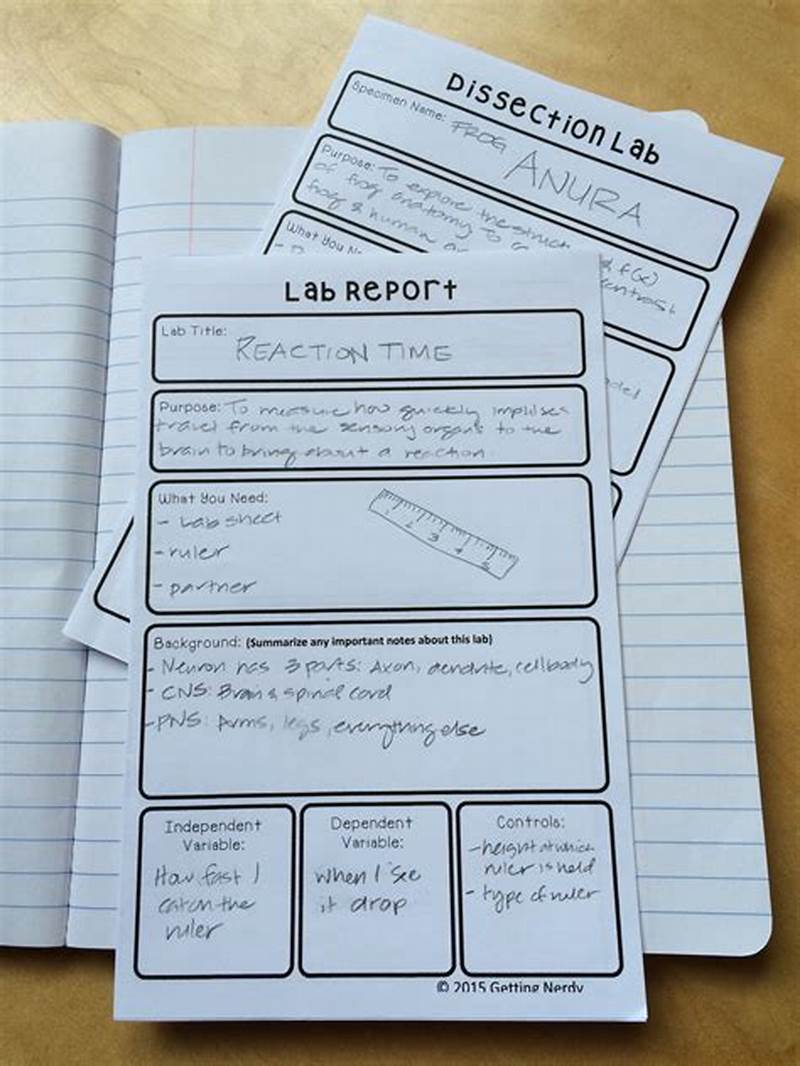 Dissection Lab
Specimen Name: FROG ANURA
Purpose: To explore the struct & f(x)
of frog anatomy to contrast
frog & human
What You
Lab Report
Lab Title: REACTION TIME
Purpose: To measure how quickly impulses
travel from the sensory organs to the
brain to bring about a reaction.
What You Need:
- Lab sheet
- ruler
- partner
1 2 3 4 5
Background: (Summarize any important notes about this lab)
- Neuron has 3 parts: Axon, dendrite, cellbody
- CNS: Brain & spinal cord
- PNS: Arms, legs, everything else
Independent
Variable:
How fast I
catch the
ruler
Dependent
Variable:
When I see
it drop
Controls:
- height at which
ruler is held
- type of ruler
© 2015 Getting Nerdy